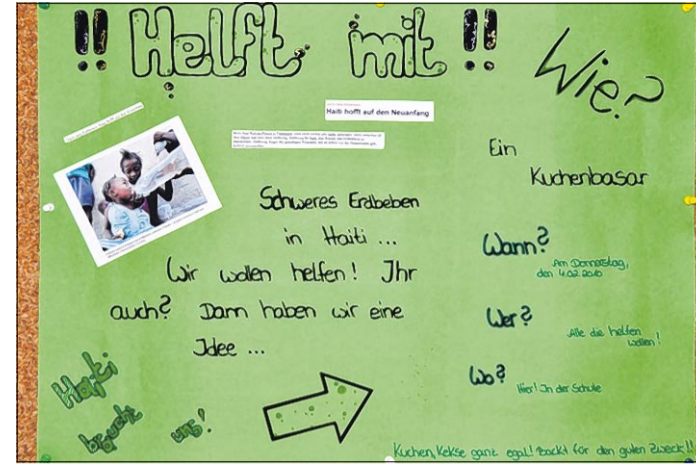 !! Helft mit !!
Wie?
Haiti hofft auf den Neuanfang
Schweres Erdbeben
in Haiti ...
Wir wollen helfen! Ihr
auch? Dann haben wir eine
Idee ...
Haiti
braucht
uns!
Ein
Kuchenbasar
Wann?
Am Donnerstag,
den 4.02.2010
Wer?
Alle die helfen
wollen!
Wo?
Hier! In der Schule
Kuchen, Kekse ganz egal! Backt für den guten Zweck!!